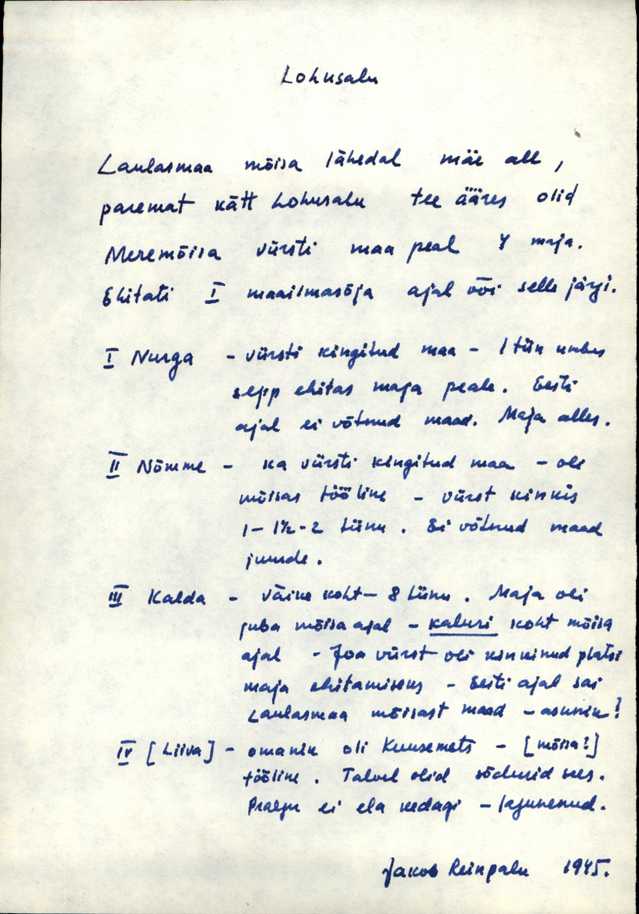 Lohusalu
Laulasmaa mõisa lähedal mäe all,
paremat kätt Lohusalu tee ääres olid
Meremõisa vürsti maa peal 4 maja.
Ehitati I maailmasõja ajal või selle järgi.
I Nurga - vürsti kingitud maa - 1 tiin umbes
sepp ehitas maja peale. Eesti
ajal ei võtnud maad. Maja alles.
II Nõmme - ka vürsti kingitud maa - oli
mõisas tööline - vürst kinkis
1- 1½-2 tiinu. Ei võtnud maad
juurde.
III Kalda - väike koht - 8 tiinu. Maja oli
juba mõisa ajal - kaluri koht mõisa
ajal - Joa vürst oli kinkinud platsi
maja ehitamiseks - Eesti ajal sai
Laulasmaa mõisast maad - asunik?
IV [Liiva] - omanik oli Kuusemets - [mõisa?]
tööline. Talvel olid sõdurid sees.
Praegu ei ela kedagi - lagunenud.
Jakob Reinpalu 1945.